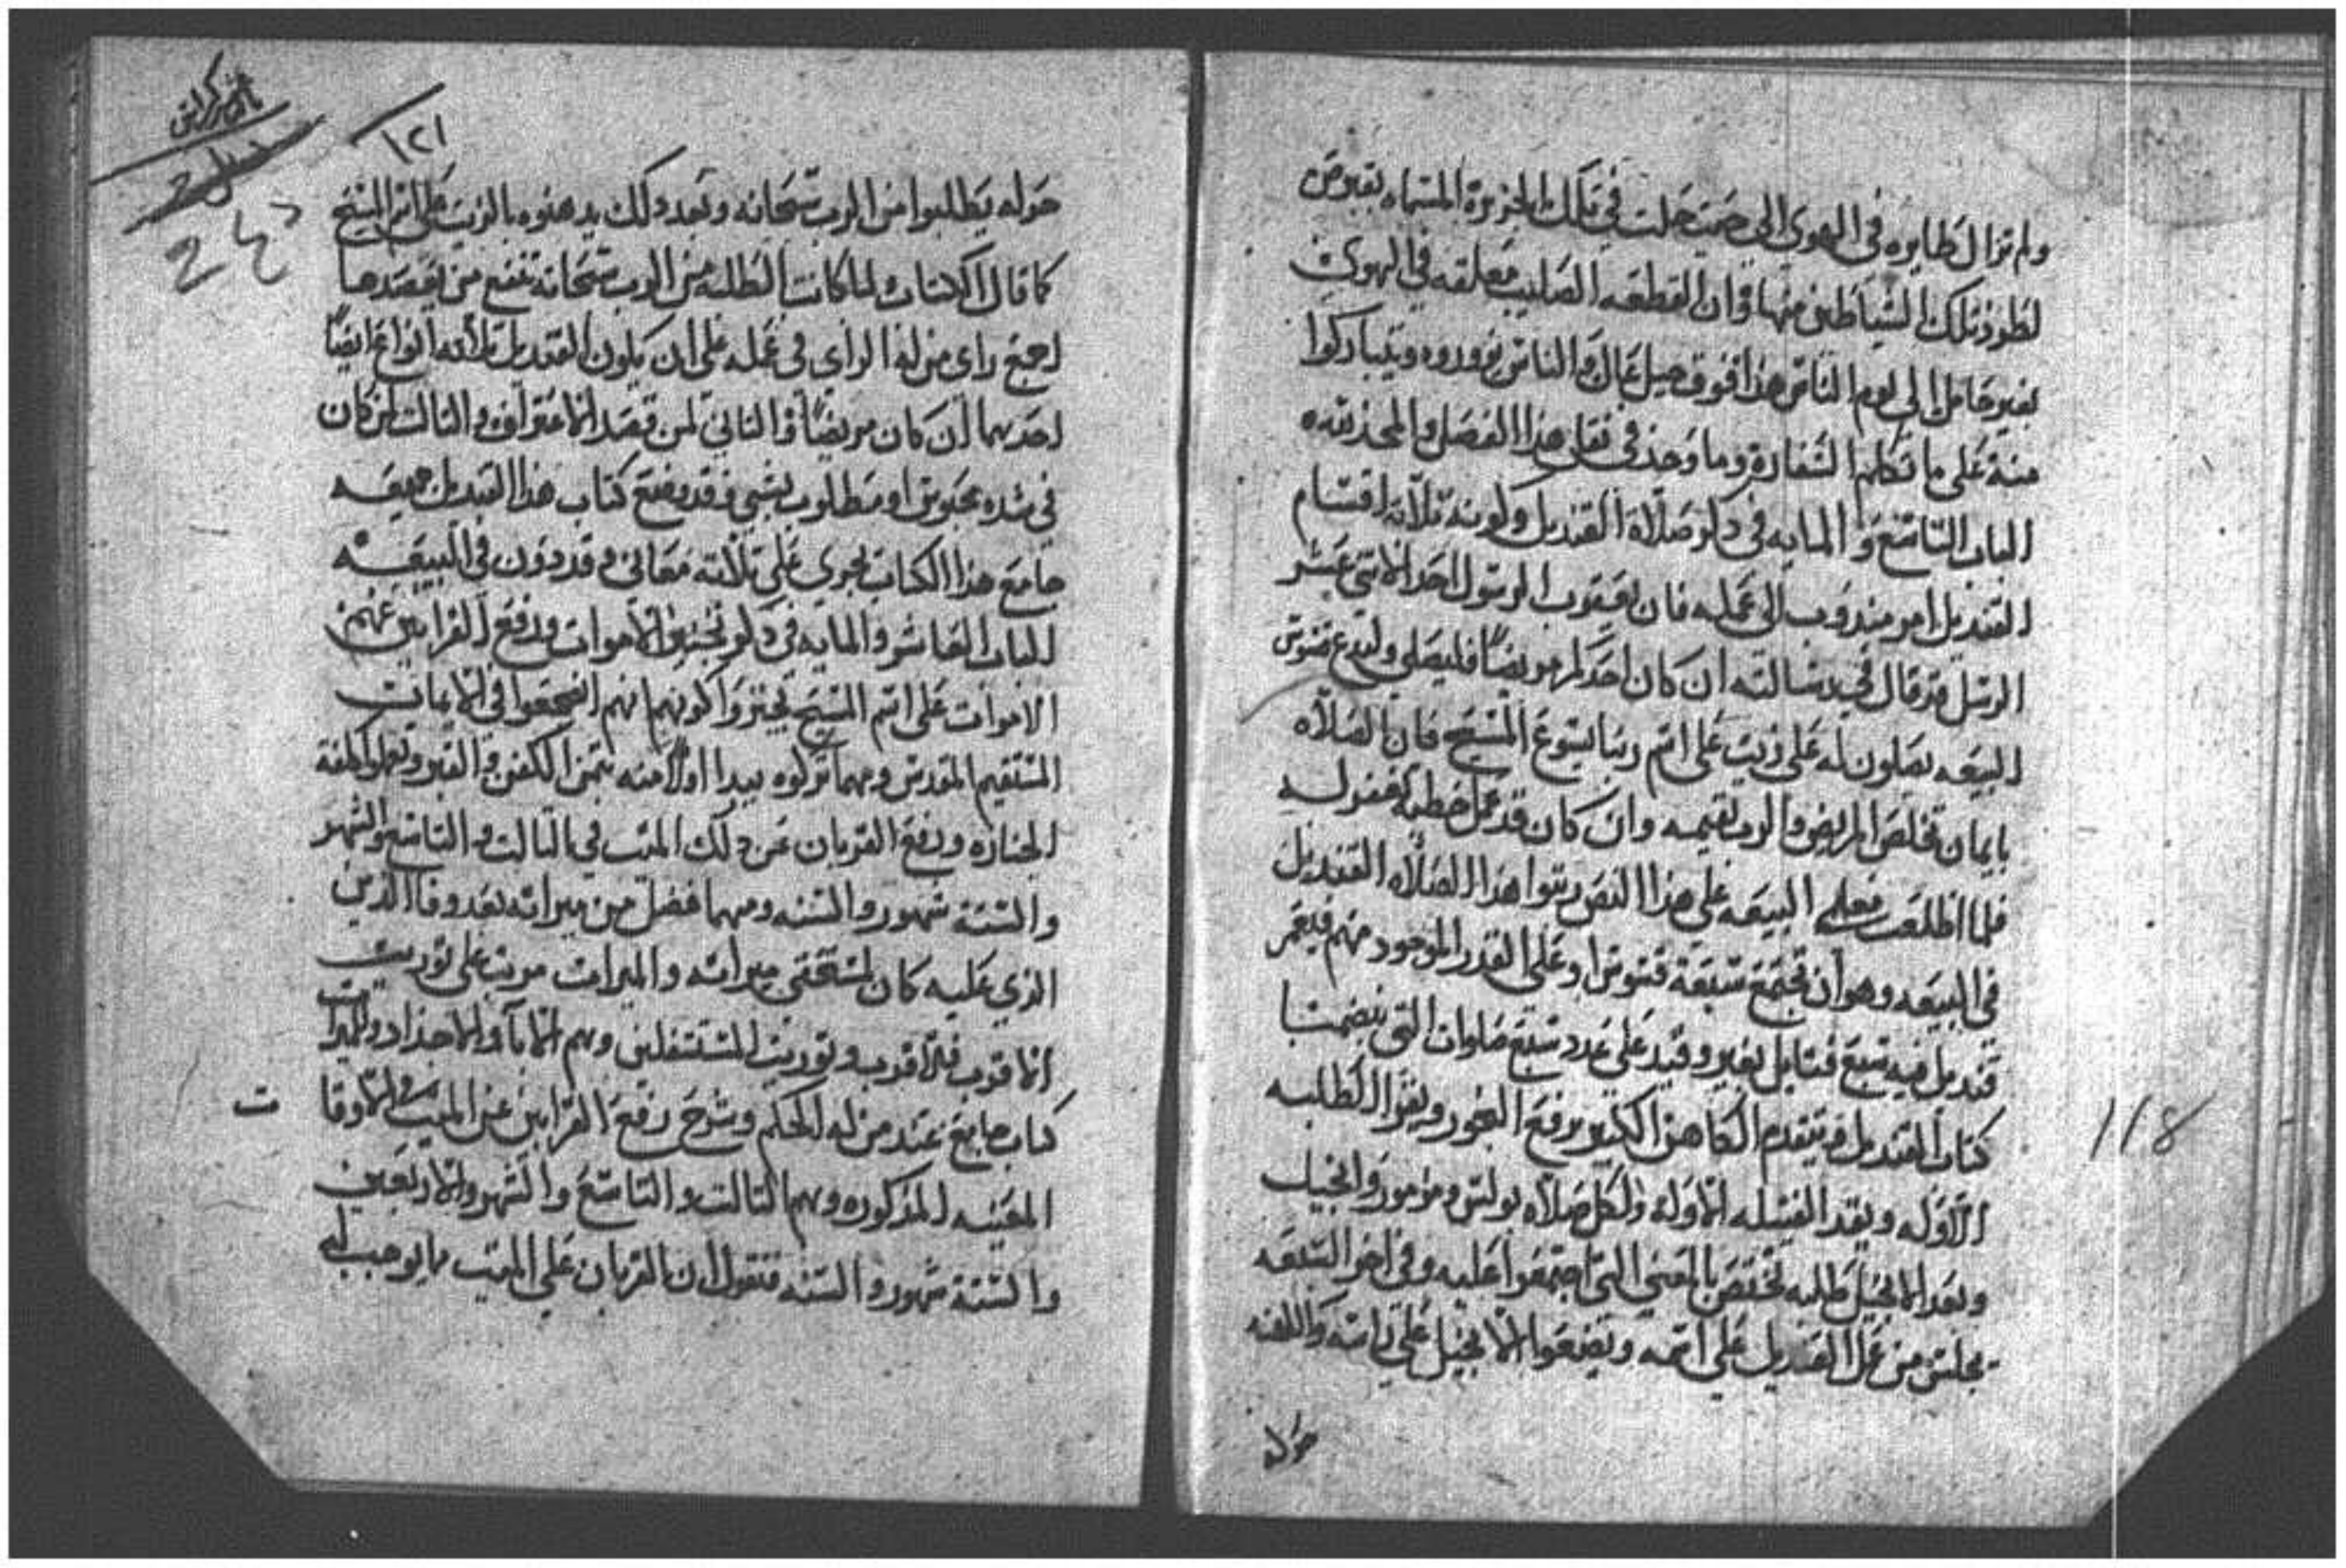 ولم تزال طايره في الهوى الى حيت حلت في تلك الجزيرة المسماه بقبرص
لطرد تلك الشياطين منها وان القطعه الصليب معلقه في الهوى
بغير حامل الى يوم الناس هذا فوق جبل عال والناس يزوروه ويتباركوا
منه على ما تكلم السفارة وما وجد في نقل هذا الفصل والمجد لله
الباب التاسع والمايه في ذكر صلاة القنديل وكونه تلاته اقسام
القنديل امر مندوب الى عمله فان يعقوب الرسول احد الاتني عشر
الرسل قد قال في رسالته ان كان احد مريضا فليصلي وليدع قسوس
البيعه يصلون له على زيت على اسم ربنا يسوع المسيح فان الصلاه
بايمان تخلص المريض والرب يقيمه وان كان قد عمل خطيه تغفر له
فلما اطلعت معلمي البيعه على هذا النص رتبوا هذا الصلاه القنديل
في البيعه وهو ان تجتمع سبعة قسوس او على القدر الموجود منهم فيعمر
قنديل فيه سبع فتايل بغير وقيد على عدد سبع صلوات التي يتضمنها
كتاب القنديل فيتقدم الكاهن الكبير يرفع البخور ويقرا الطلبه
الاوله ويقد الفتيله الاوله ولكل صلاه بولس ومزمور وانجيل
وبعد الانجيل طلبه تختص بالمعني التي اجتمعوا عليه وفي اخر السبعه
يجلس من عمل القنديل على اسمه ويضعوا الانجيل على راسه والكهنه
حوله
١٢١
حوله يطلبوا من الرب سبحانه وبعد دلك يدهنوه بالزيت على اسم المسيح
كما قال الكتاب ولما كانت الطلبه من الرب سبحانه تنفع من يقصدها
اجمع راي من له الراي في عمله على ان يكون القنديل تلاته انواع ايضا
احدهما ان كان مريضا والتاني لمن قصد الاعتراف والتالت لمن كان
في شده محبوس او مطلوب بشي وقد وضع كتاب هذا القنديل جميعه
جامع هذا الكتاب يجري على تلاته معاني وقد دون في البيعه
الباب العاشر والمايه في ذكر تجنيز الاموات ورفع القرابين عنهم
الاموات على اسم المسيح تجنزوا كونهم انهم انضجعوا في الامانت
المستقيم المقدس ومهما تركوه يبدا اولا منه بتمن الكفن والقبر وتعمل كلفة
الجنازه ورفع القربان عن دلك الميت في التالت والتاسع والشهر
والستة شهور والسنه ومهما فضل من ميراته بعد وفا الدين
الذي عليه كان لمستحقي ميراته والميرات مرتب على توريت
الاقرب فالاقرب وتوريت المستسفلين وهم الابا والاجداد وللميرات
كتاب جامع عند من له الحكم وشرح رفع القرابين عن الميت في الاوقات
المعينه المذكوره وهم التالت والتاسع والشهر والاربعين
والستة شهور والسنه فنقول ان القربان على الميت ما يوجب له
118